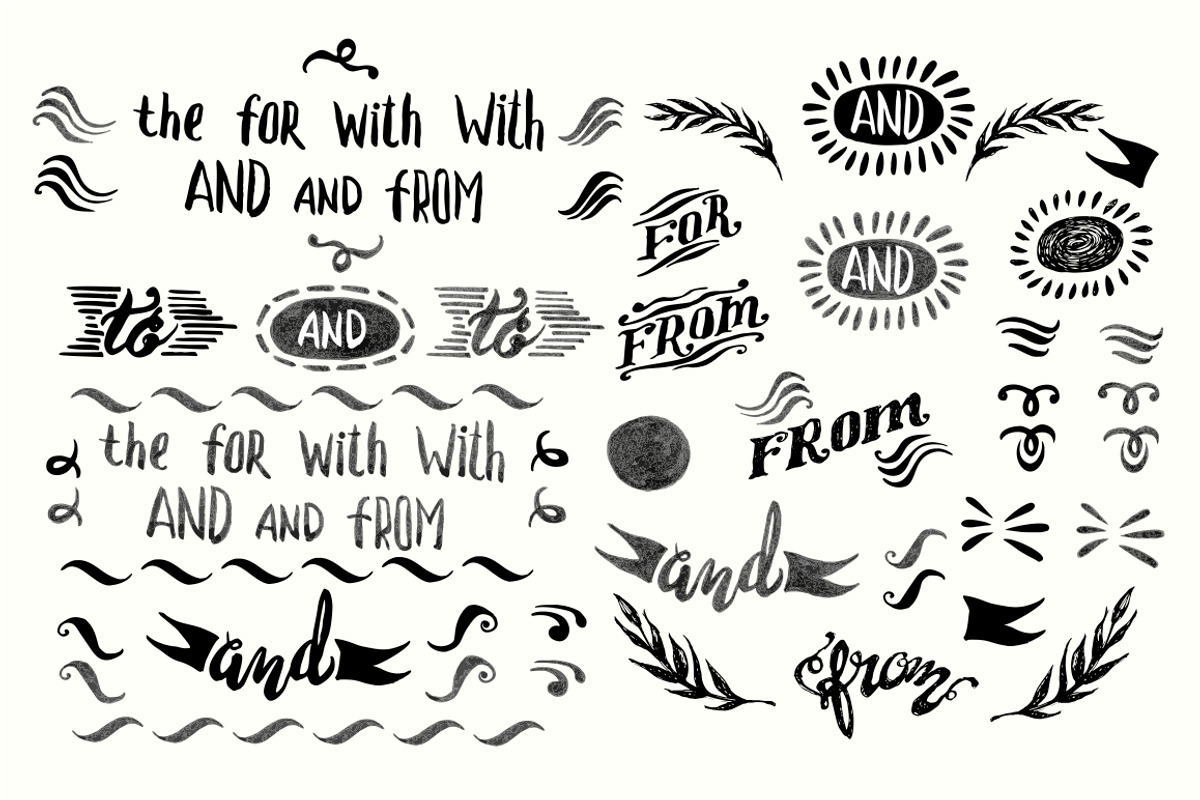 the fOR with With
AND AND fROM
to
AND
to
the fOR with With
AND AND fROM
and
AND
FOR
AND
FROM
FROM
and
from